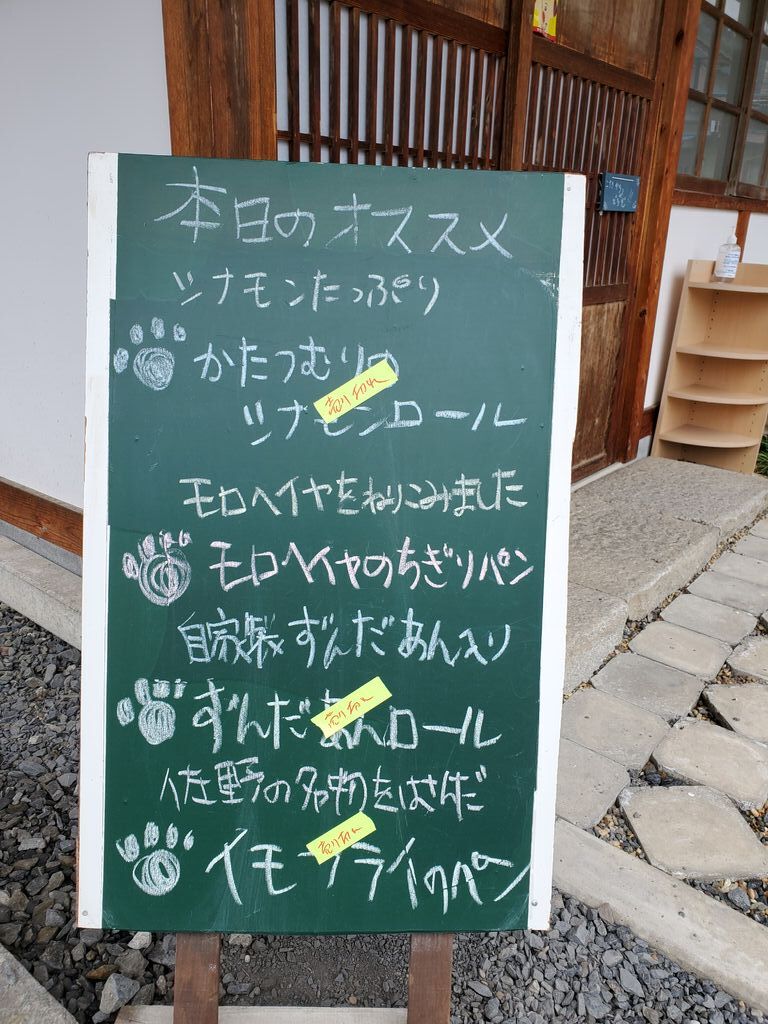 本日のオススメ
ツナモンたっぷり
かたつむりの
売り切れ
ツナモンロール
モロヘイヤをねりこみました
モロヘイヤのちぎりパン
自家製ずんだあん入り
ずんだあんロール
売り切れ
佐野の名物をはさんだ
売り切れ
イモフライのパン